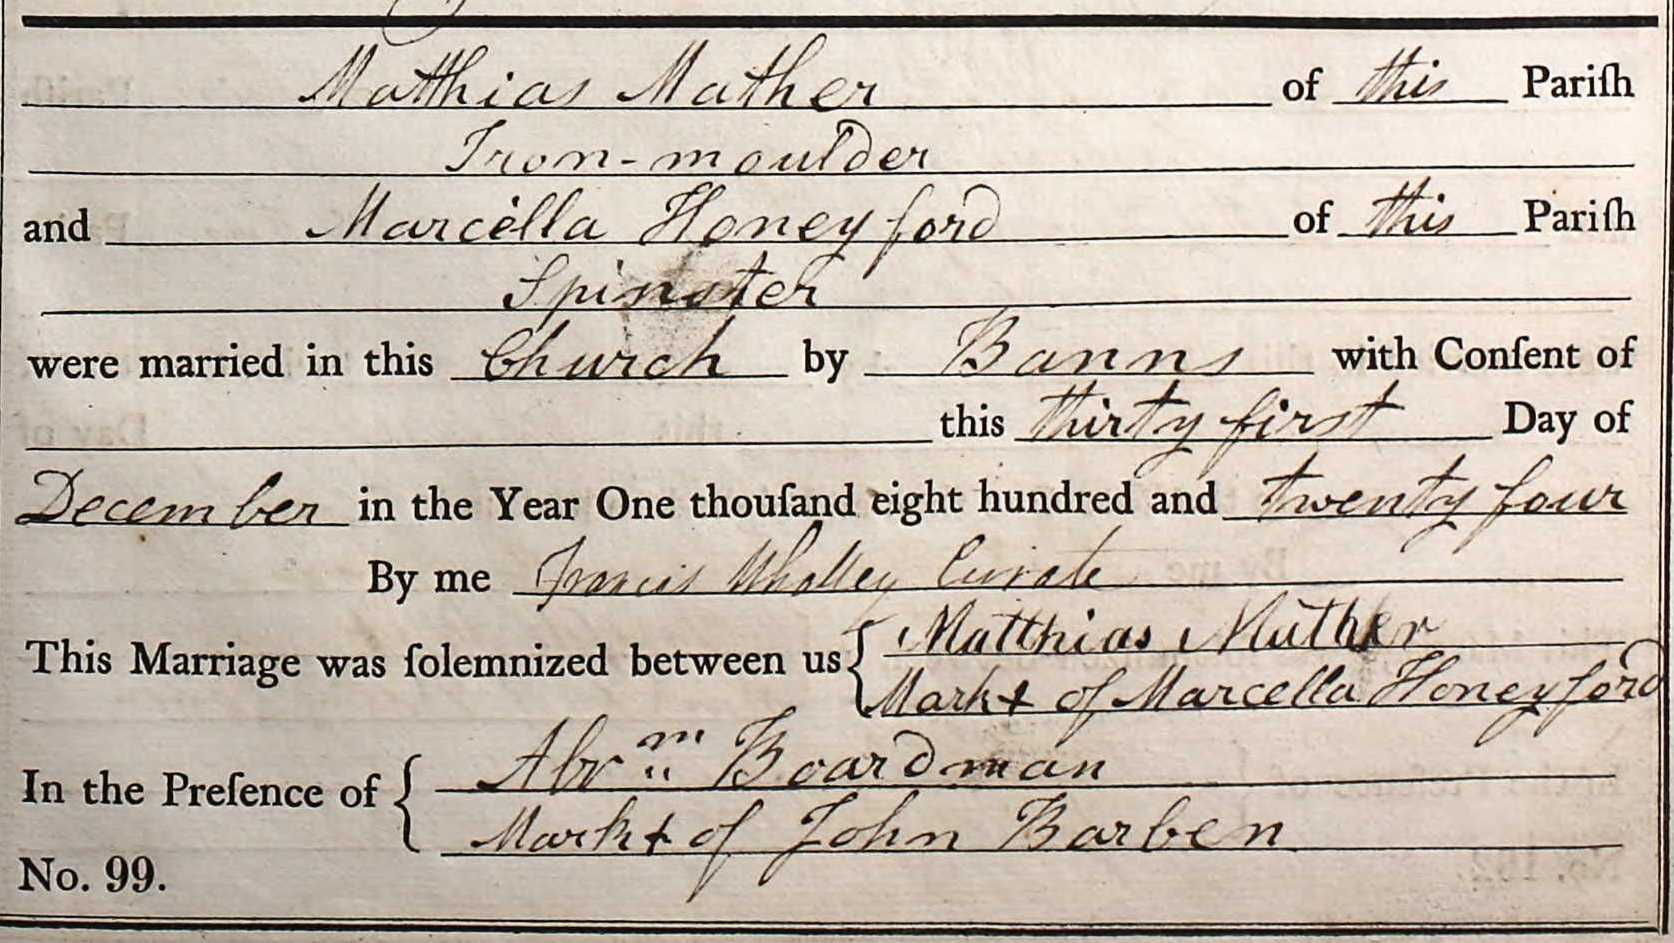 Matthias Mather of this Pariſh
Iron-moulder
and Marcella Honeyford of this Pariſh
Spinster
were married in this Church by Banns with Conſent of
this thirty first Day of
December in the Year One thouſand eight hundred and twenty four
By me Francis Whalley Curate
This Marriage was ſolemnized between us { Matthias Mather
Mark + of Marcella Honeyford
In the Preſence of { Abrm Boardman
Mark + of John Barben
No. 99.